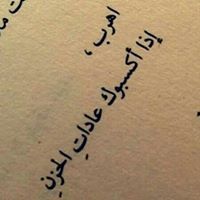 اهرب ،
إذا أكسبوك عاداتِ الحزنِ